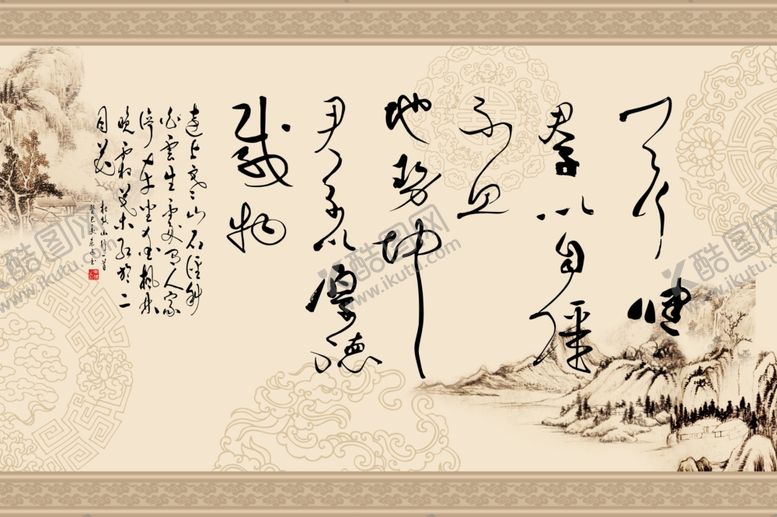 天行健
君子以自强
不息
地势坤
君子以厚德
载物
远上寒山石径斜
白云生处有人家
停车坐爱枫林
晚霜叶红於二
月花
杜牧山行一首
酷图网
www.ikutu.com